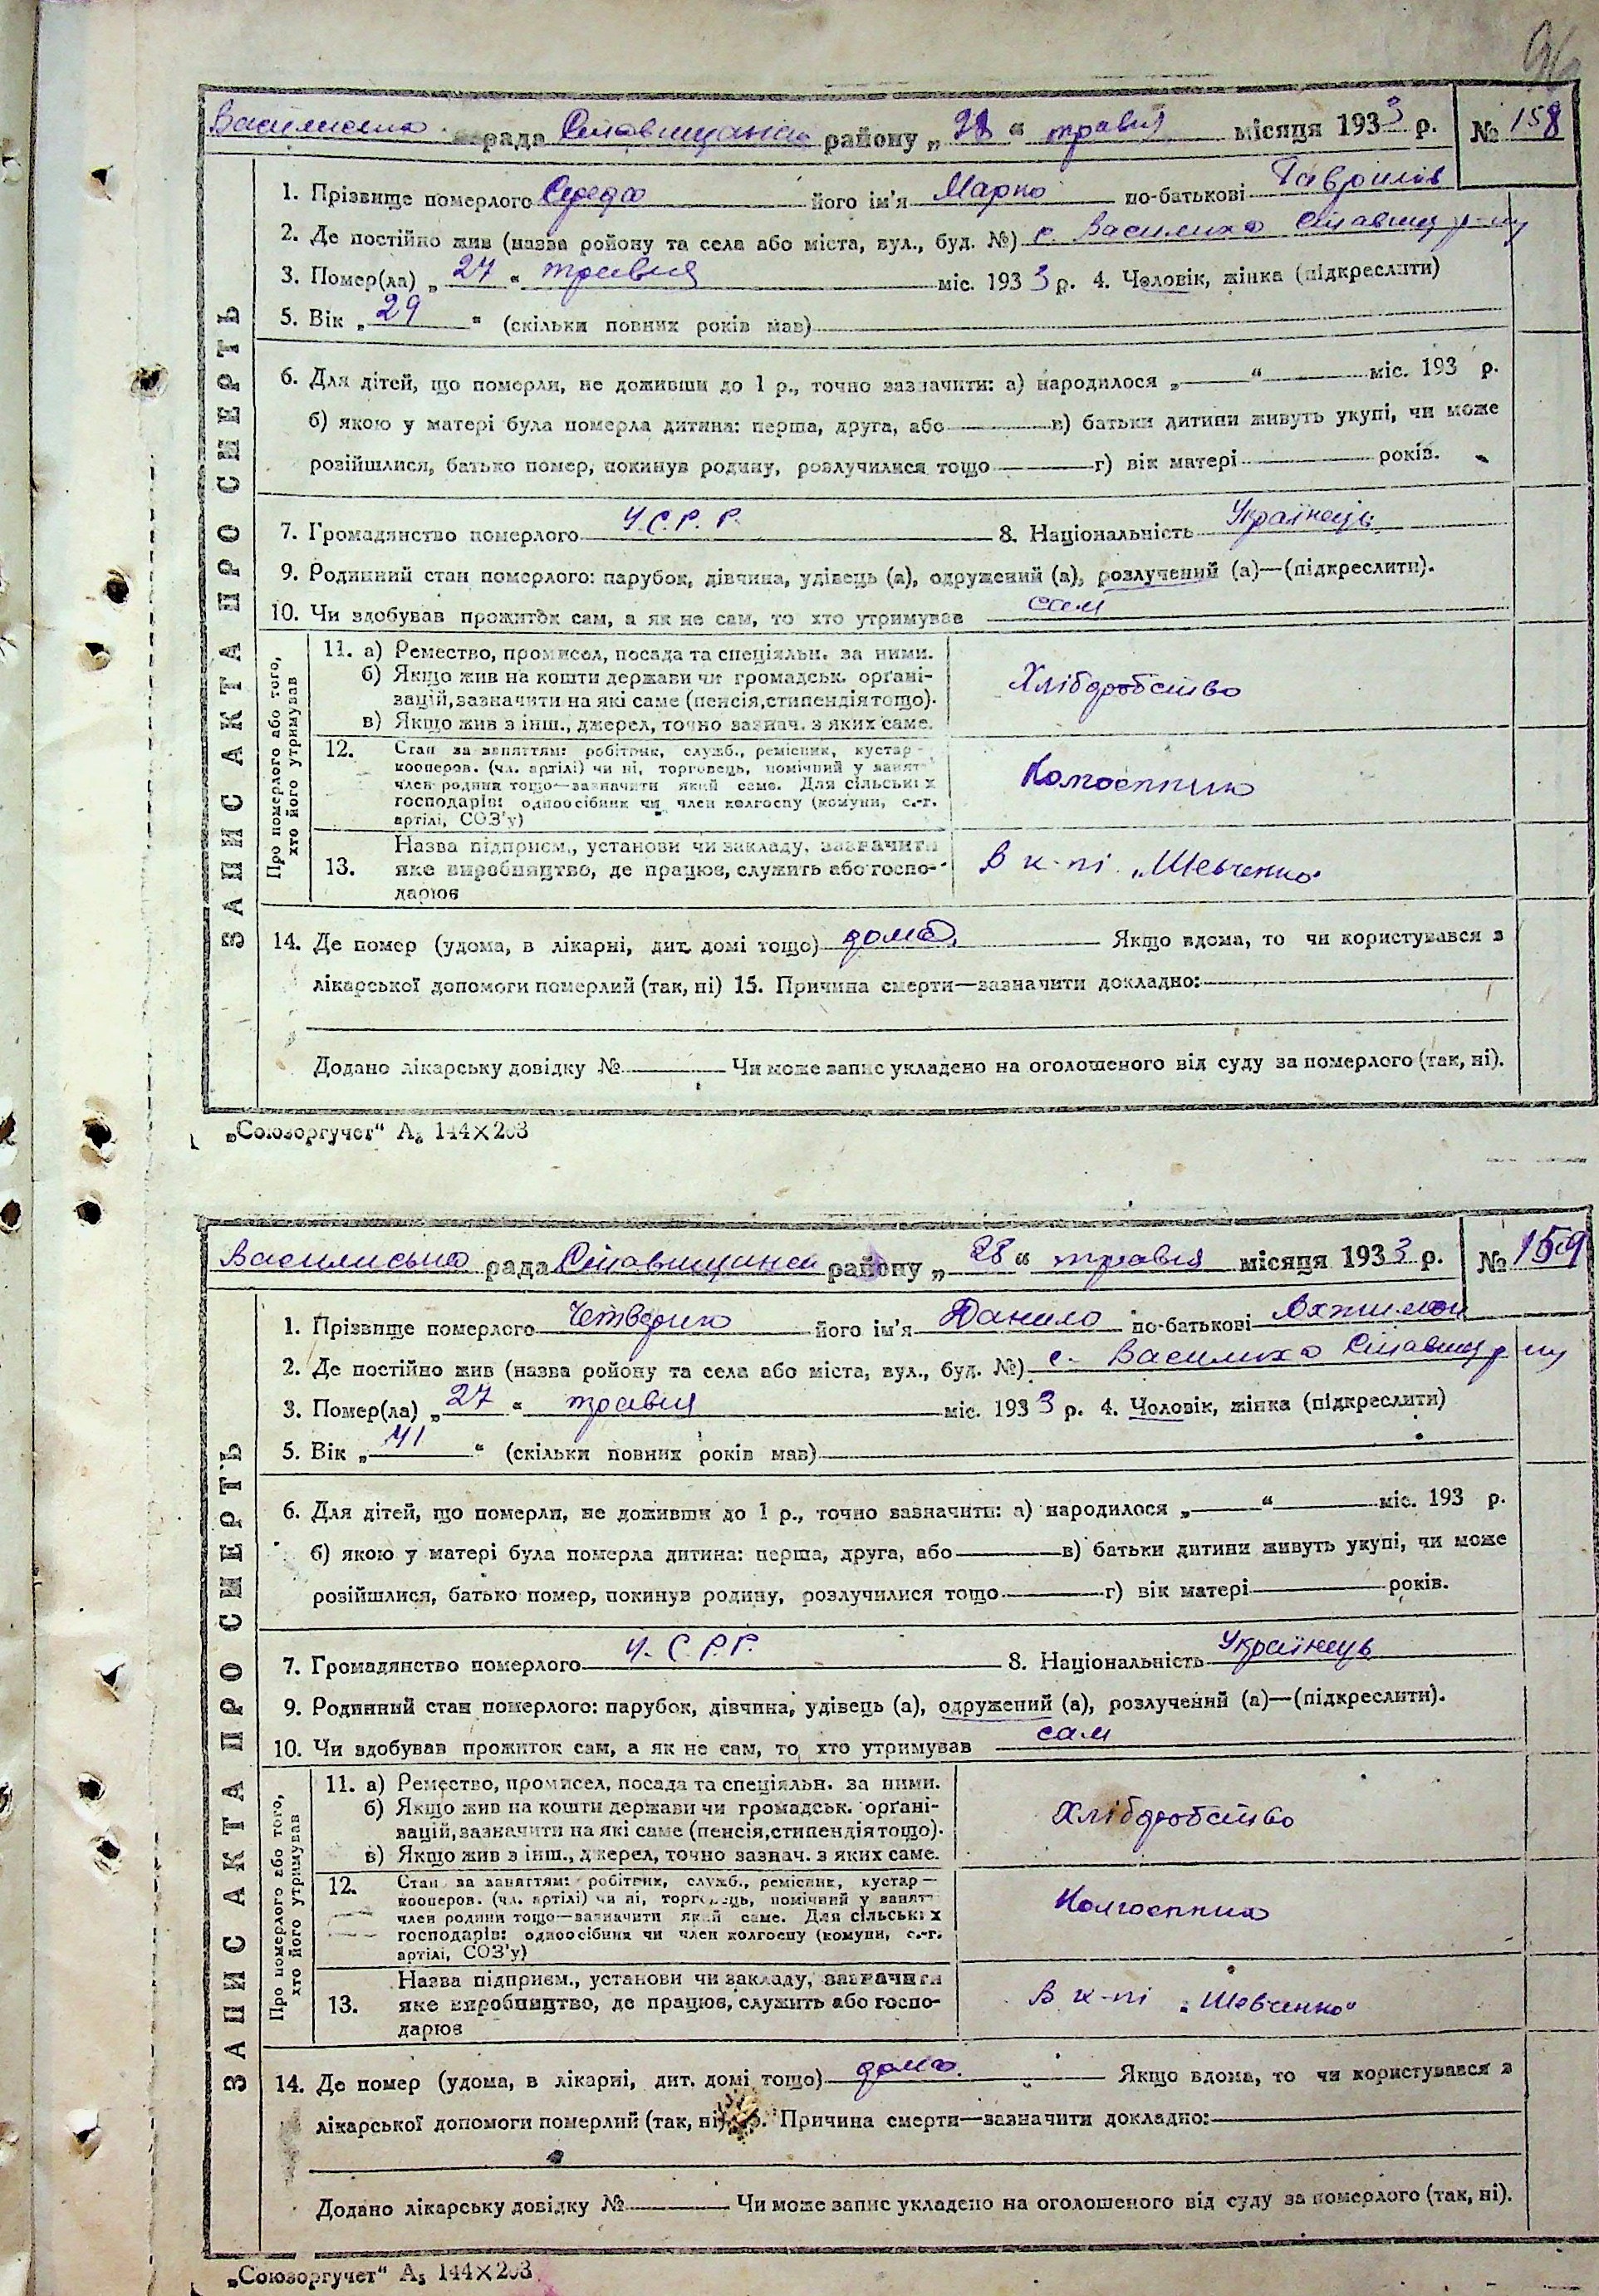 рада Ставищанськ району „28“ травня місяця 1933 р. № 158
1. Прізвище померлого Середа його ім'я Марко по-батькові Гаврилів
2. Де постійно жив (назва ройону та села або міста, вул., буд. №) с. Василиха Ставищ р-ну
3. Помер(ла) „27“ травня міс. 1933 р. 4. Чоловік, жінка (підкреслити)
5. Вік „29“ (скільки повних років мав)
6. Для дітей, що померли, не доживши до 1 р., точно зазначити: а) народилося „ “ міс. 193 р.
б) якою у матері була померла дитина: перша, друга, або в) батьки дитини живуть укупі, чи може
розійшлися, батько помер, покинув родину, розлучилися тощо г) вік матері років.
7. Громадянство померлого У.С.Р.Р. 8. Національність Українець
9. Родинний стан померлого: парубок, дівчина, удівець (а), одружений (а), розлучений (а)—(підкреслити).
10. Чи здобував прожиток сам, а як не сам, то хто утримував сам
ЗАПИС АКТА ПРО СМЕРТЬ
Про померлого або того,
хто його утримував
11. а) Ремество, промисел, посада та спеціяльн. за ними.
б) Якщо жив на кошти держави чи громадськ. органі-
зацій, зазначити на які саме (пенсія, стипендія тощо).
в) Якщо жив з інш., джерел, точно зазнач. з яких саме.
Хліборобство
12. Стан за заняттям: робітник, служб., ремісник, кустар—
кооперов. (чл. артілі) чи ні, торговець, помічний у занятт
член родини тощо—зазначити який саме. Для сільських
господарів: одноосібник чи член колгоспу (комуни, с.-г.
артілі, СОЗ'у)
Колгоспник
13. Назва підприєм., установи чи закладу, зазначити
яке виробництво, де працює, служить або госпо-
дарює
В к-пі „Шевченко“
14. Де помер (удома, в лікарні, дит. домі тощо) дома. Якщо вдома, то чи користувався з
лікарської допомоги померлий (так, ні) 15. Причина смерти—зазначити докладно:
Додано лікарську довідку № Чи може запис укладено на оголошеного від суду за померлого (так, ні).
„Союзоргучет“ А₅ 144×203
Василиська рада Ставищанськ району „28“ травня місяця 1933 р. № 159
1. Прізвище померлого Четверик його ім'я Данило по-батькові
2. Де постійно жив (назва ройону та села або міста, вул., буд. №) с. Василиха Ставищ р-ну
3. Помер(ла) „27“ травня міс. 1933 р. 4. Чоловік, жінка (підкреслити)
5. Вік „41“ (скільки повних років мав)
6. Для дітей, що померли, не доживши до 1 р., точно зазначити: а) народилося „ “ міс. 193 р.
б) якою у матері була померла дитина: перша, друга, або в) батьки дитини живуть укупі, чи може
розійшлися, батько помер, покинув родину, розлучилися тощо г) вік матері років.
7. Громадянство померлого У.С.Р.Р. 8. Національність Українець
9. Родинний стан померлого: парубок, дівчина, удівець (а), одружений (а), розлучений (а)—(підкреслити).
10. Чи здобував прожиток сам, а як не сам, то хто утримував сам
ЗАПИС АКТА ПРО СМЕРТЬ
Про померлого або того,
хто його утримував
11. а) Ремество, промисел, посада та спеціяльн. за ними.
б) Якщо жив на кошти держави чи громадськ. органі-
зацій, зазначити на які саме (пенсія, стипендія тощо).
в) Якщо жив з інш., джерел, точно зазнач. з яких саме.
Хліборобство
12. Стан за заняттям: робітник, служб., ремісник, кустар—
кооперов. (чл. артілі) чи ні, торговець, помічний у занятт
член родини тощо—зазначити який саме. Для сільських
господарів: одноосібник чи член колгоспу (комуни, с.-г.
артілі, СОЗ'у)
Колгоспник
13. Назва підприєм., установи чи закладу, зазначити
яке виробництво, де працює, служить або госпо-
дарює
В к-пі „Шевченко“
14. Де помер (удома, в лікарні, дит. домі тощо) дома. Якщо вдома, то чи користувався з
лікарської допомоги померлий (так, ні) Причина смерти—зазначити докладно:
Додано лікарську довідку № Чи може запис укладено на оголошеного від суду за померлого (так, ні).
„Союзоргучет“ А₅ 144×203